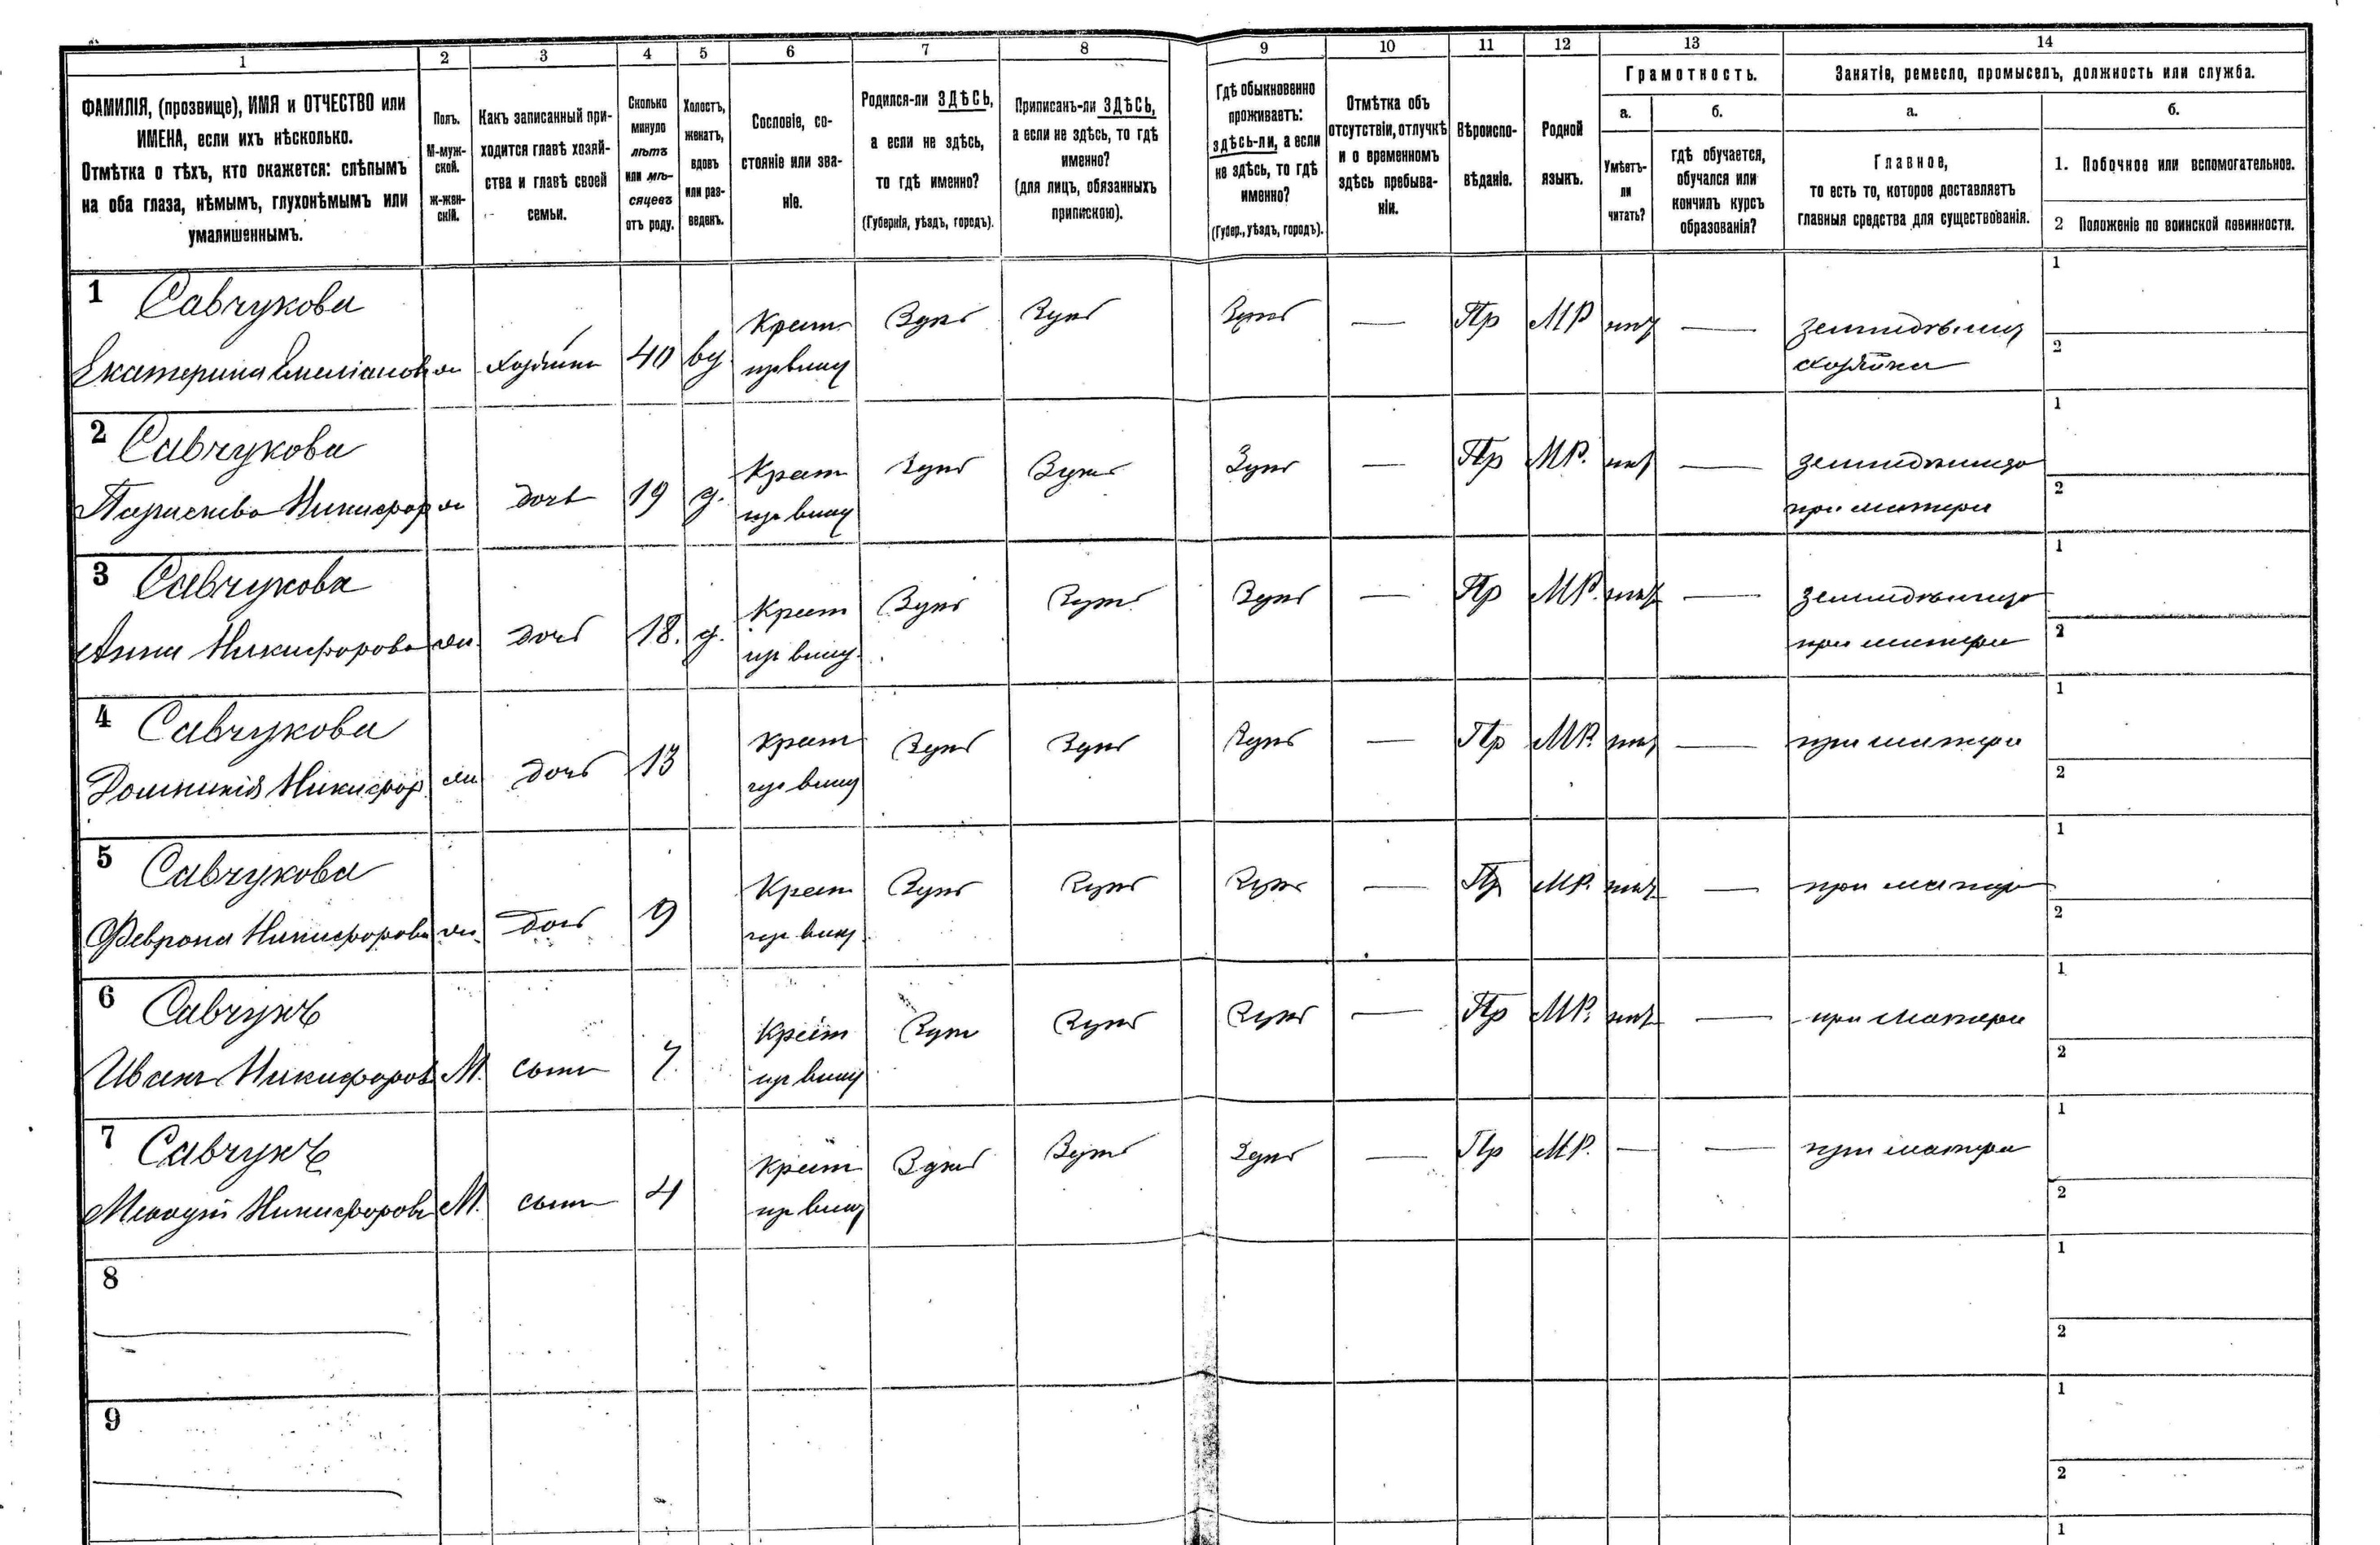 1 2 3 4 5 6 7 8 9 10 11 12 13 14
ФАМИЛІЯ, (прозвище), ИМЯ и ОТЧЕСТВО или
ИМЕНА, если ихъ нѣсколько.
Отмѣтка о тѣхъ, кто окажется: слѣпымъ
на оба глаза, нѣмымъ, глухонѣмымъ или
умалишеннымъ.
Полъ.
М-муж-
ской.
Ж-жен-
скій.
Какъ записанный при-
ходится главѣ хозяй-
ства и главѣ своей
семьи.
Сколько
минуло
лѣтъ
или мѣ-
сяцевъ
отъ роду.
Холостъ,
женатъ,
вдовъ
или раз-
веденъ.
Сословіе, со-
стояніе или зва-
ніе.
Родился-ли ЗДѢСЬ,
а если не здѣсь,
то гдѣ именно?
(Губернія, уѣздъ, городъ).
Приписанъ-ли ЗДѢСЬ,
а если не здѣсь, то гдѣ
именно?
(для лицъ, обязанныхъ
припискою).
Гдѣ обыкновенно
проживаетъ:
здѣсь-ли, а если
не здѣсь, то гдѣ
именно?
(Губер., уѣздъ, городъ).
Отмѣтка объ
отсутствіи, отлучкѣ
и о временномъ
здѣсь пребыва-
ніи.
Вѣроиспо-
вѣданіе.
Родной
языкъ.
Грамотность.
а.
Умѣетъ-
ли
читать?
б.
гдѣ обучается,
обучался или
кончилъ курсъ
образованія?
Занятіе, ремесло, промыселъ, должность или служба.
а.
Главное,
то есть то, которое доставляетъ
главныя средства для существованія.
б.
1. Побочное или вспомогательное.
2 Положеніе по воинской повинности.
1 Савчукова Крест Здѣсь Здѣсь Здѣсь — Пр МР нѣтъ — 1
Екатерина Емеліанов ж Хозяйка 40 вд. хозяйка 2
2 Савчукова Крест Здѣсь Здѣсь Здѣсь — Пр МР. нѣтъ — 1
Параскева Никифор ж дочь 19 д. при матери 2
3 Савчукова Крест Здѣсь Здѣсь Здѣсь — Пр МР. нѣтъ — 1
Анна Никифорова ж. дочь 18. д. при матери 2
4 Савчукова Крест Здѣсь Здѣсь Здѣсь — Пр МР. нѣтъ — при матери 1
Домникія Никифор ж дочь 13 2
5 Савчукова Крест Здѣсь Здѣсь Здѣсь — Пр МР. нѣтъ — при матери 1
Феврона Никифорова ж. дочь 9 2
6 Савчукъ Крест Здѣсь Здѣсь Здѣсь — Пр МР. нѣтъ — при матери 1
Иванъ Никифоровъ М. сынъ 7. 2
7 Савчукъ Крест Здѣсь Здѣсь Здѣсь — Пр МР. — — при матери 1
Никифоровъ М. сынъ 4 2
8 1
2
9 1
2
1